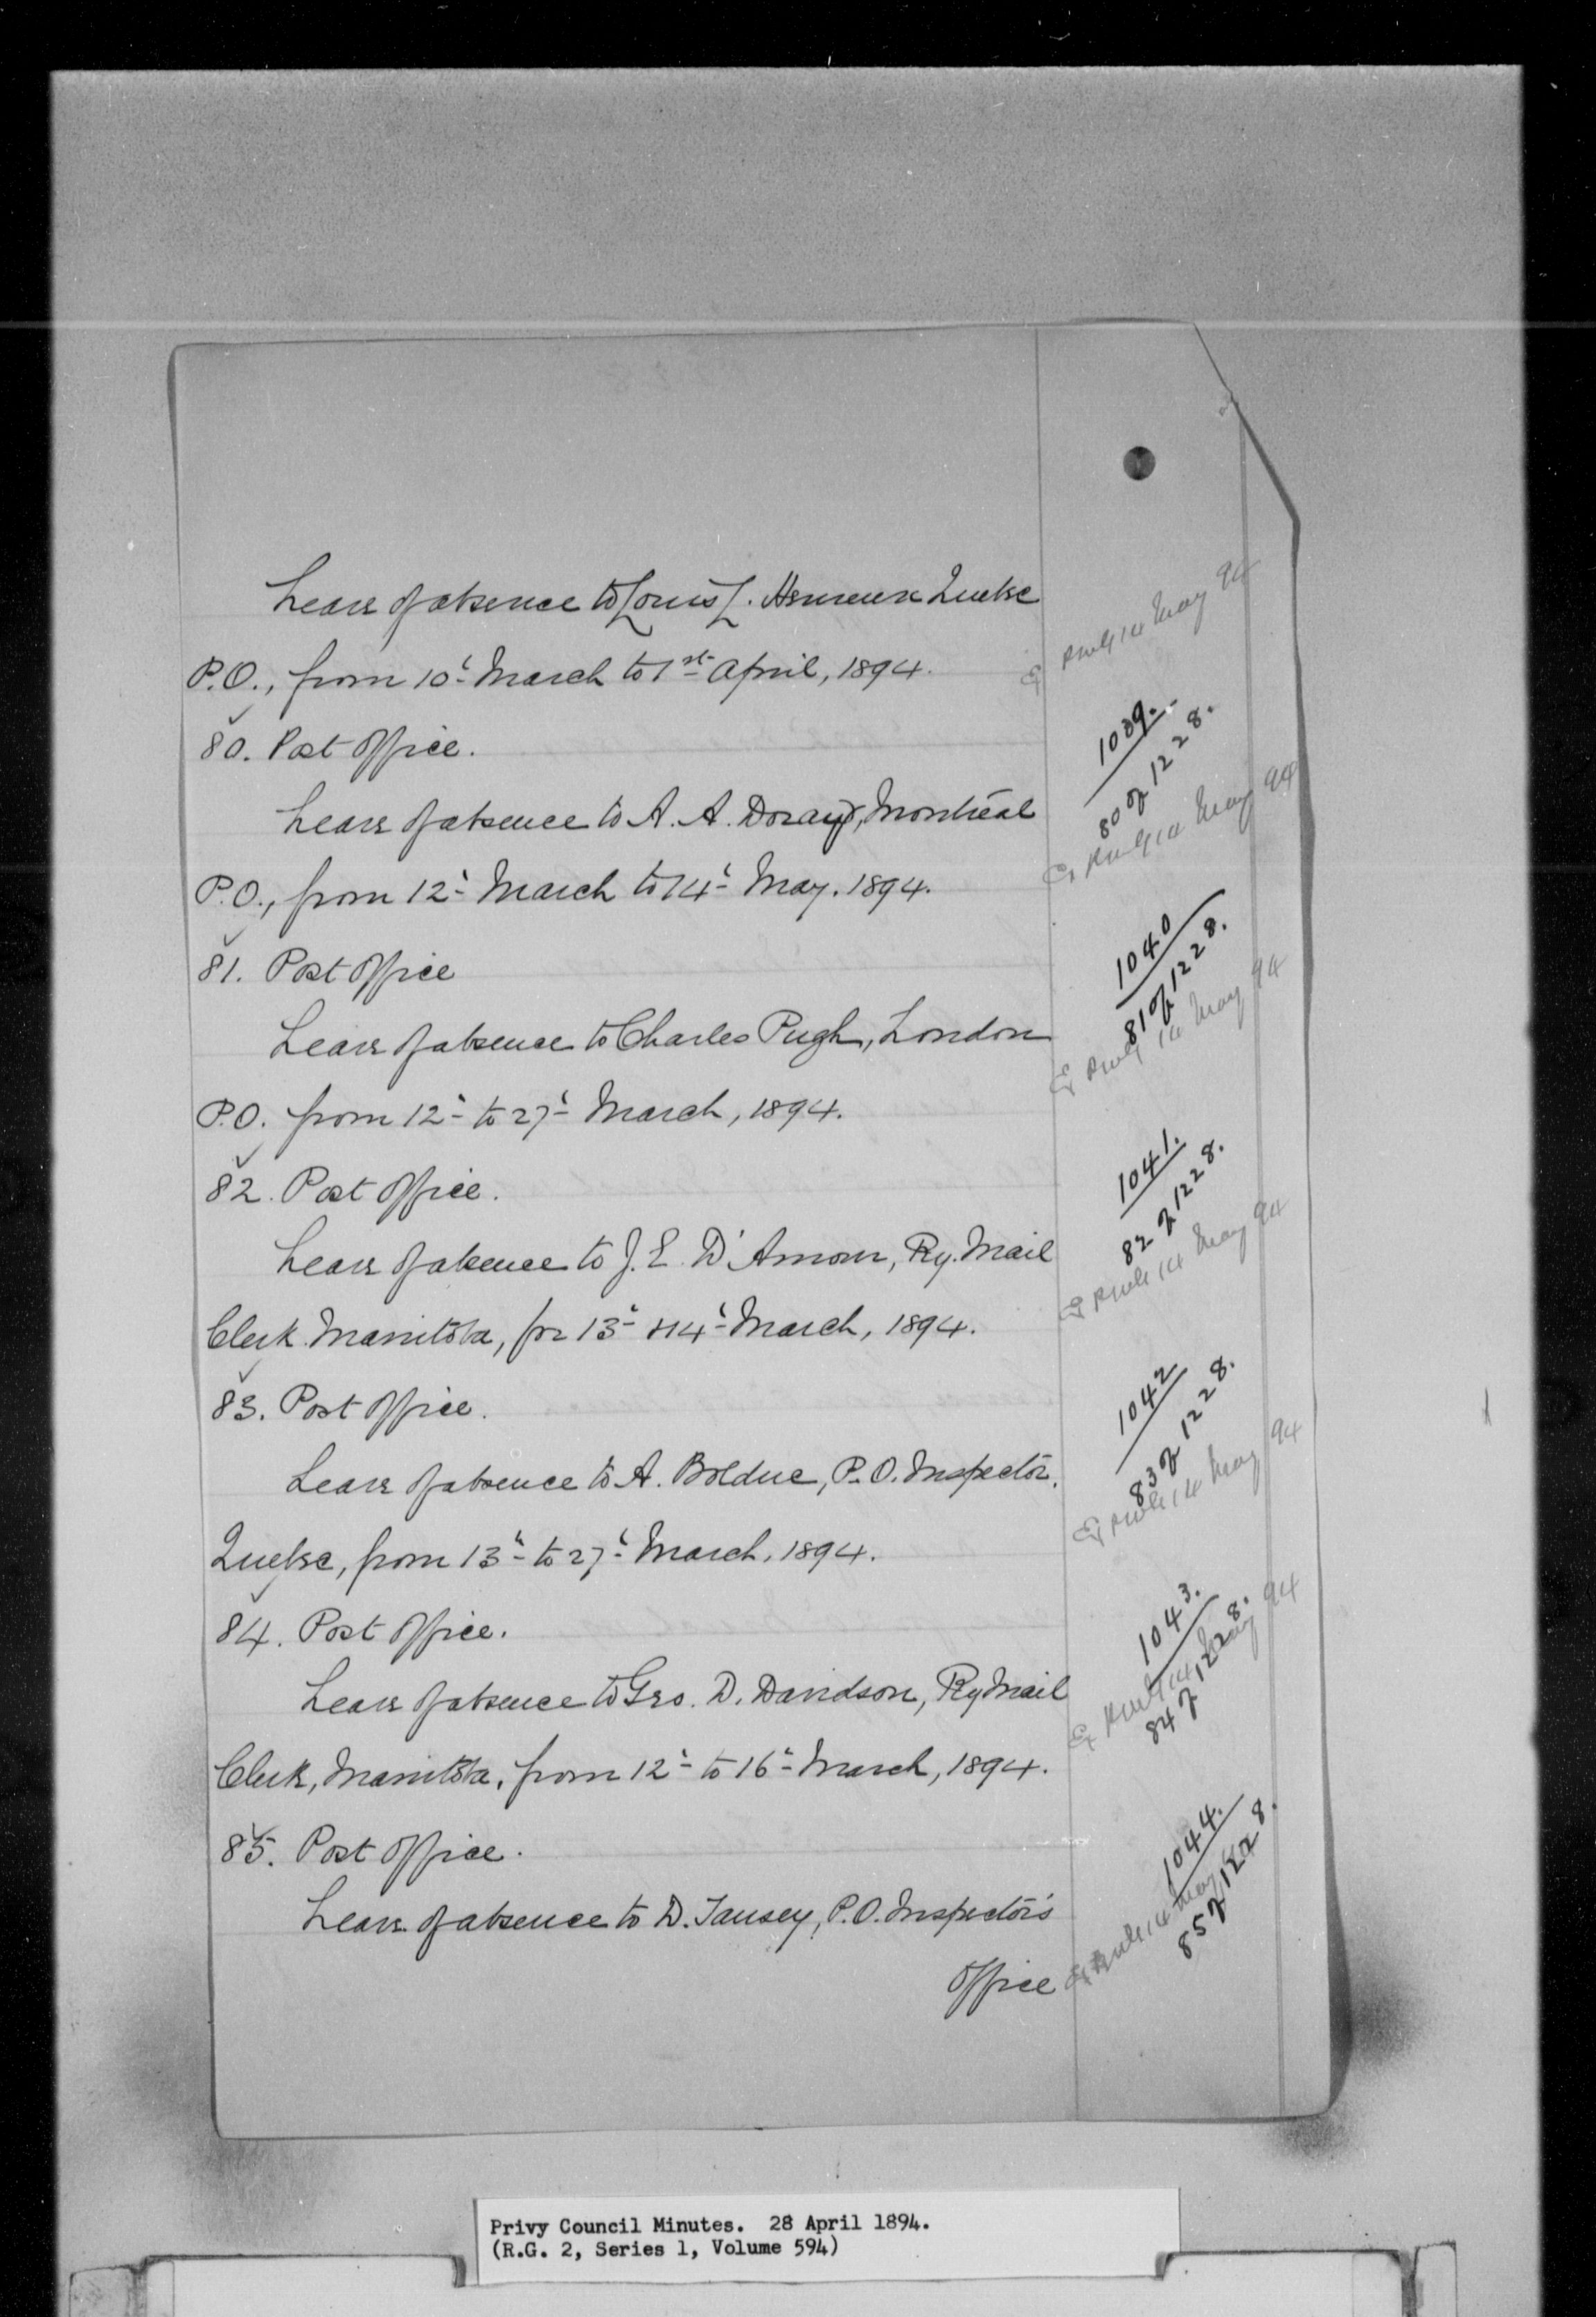 Leave of absence to Louis L. Quebec
P.O., from 10th March to 1st April, 1894.
80. Post Office.
Leave of absence to A. A. Montreal
P.O., from 12th March to 14th May, 1894.
81. Post Office
Leave of absence to Charles Pugh, London
P.O. from 12th to 27th March, 1894.
82. Post Office.
Leave of absence to J. E. D'Amour, Ry. Mail
Clerk Manitoba, for 13th & 14th March, 1894.
83. Post Office.
Leave of absence to A. Bolduc, P.O. Inspector,
Quebec, from 13th to 27th March, 1894.
84. Post Office.
Leave of absence to Geo. D. Davidson, Ry Mail
Clerk, Manitoba, from 12th to 16th March, 1894.
85. Post Office.
Leave of absence to D. Tansey, P.O. Inspector's
Office
14 May 94
1039.
80 of 1228.
14 May 94
1040
81 of 1228.
14 May 94
1041.
82 of 1228.
14 May 94
1042
83 of 1228.
14 May 94
1043.
84 of 1228.
14 May 94
1044.
85 of 1228.
14 May
Privy Council Minutes. 28 April 1894.
(R.G. 2, Series 1, Volume 594)